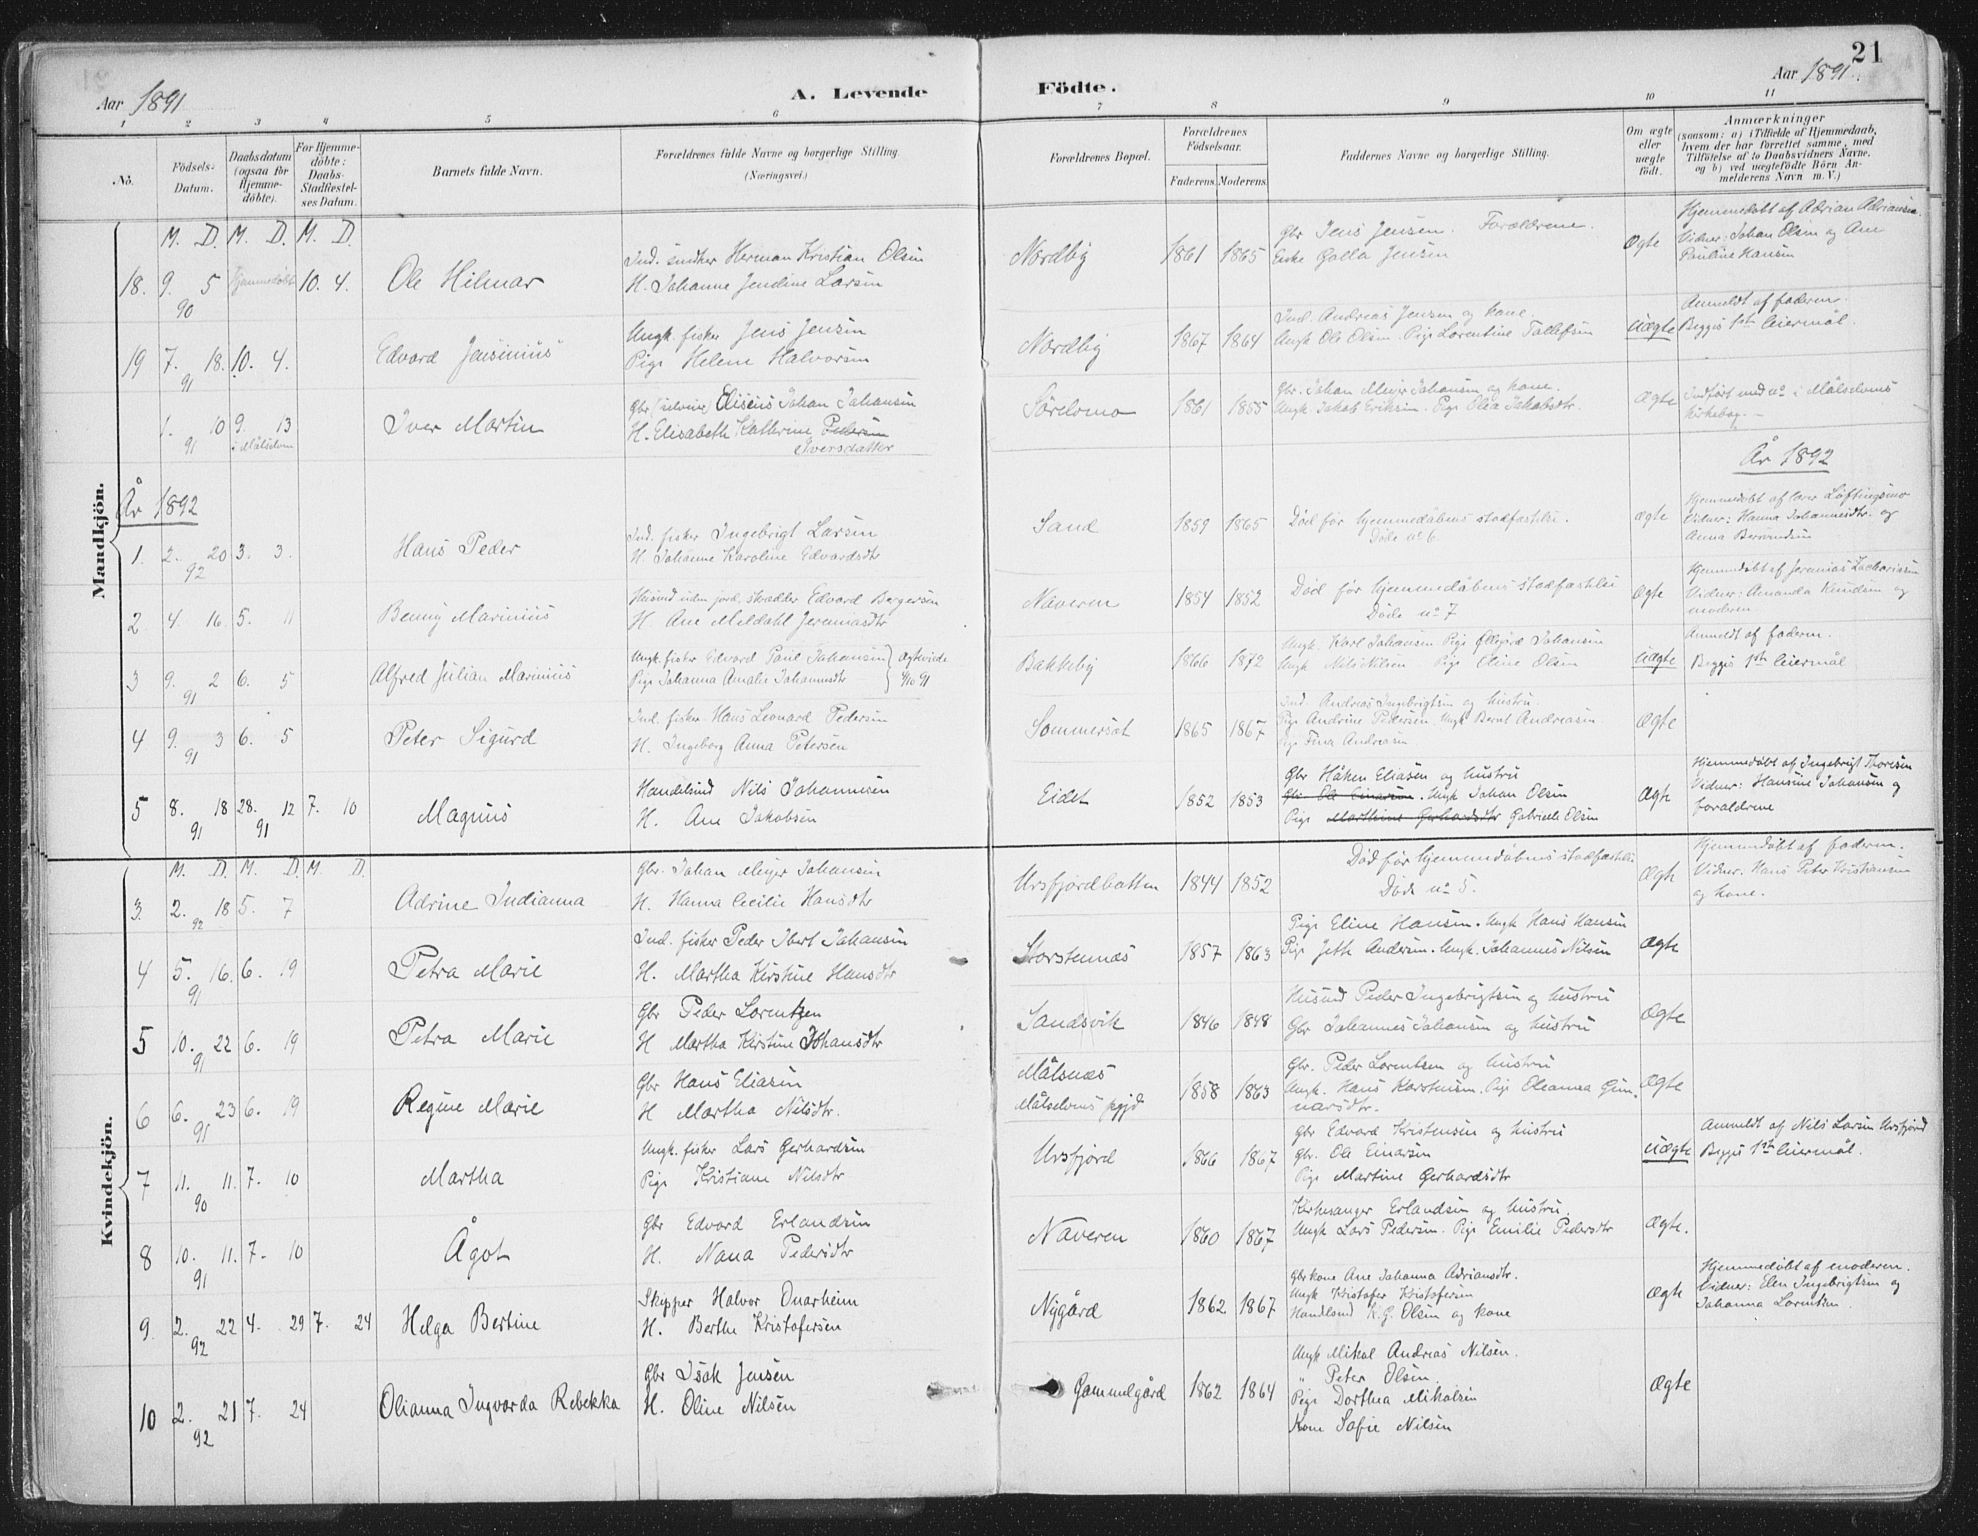 21
Aar 1891
A. Levende
Födte.
Aar 1891.
1 2 3 4 5 6 7 8 9 10 11
No.
Födsels-Datum.
Daabsdatum (ogsaa for Hjemme-döbte).
For Hjemme-döbte: Daabs-Stadfæstel-ses Datum.
Barnets fulde Navn.
Forældrenes fulde Navne og borgerlige Stilling.
(Næringsvei.)
Forældrenes Bopæl.
Forældrenes Födselsaar.
Faderens. Moderens.
Faddernes Navne og borgerlige Stilling.
Om ægte eller uægte födt.
Anmærkninger
(saasom: a) i Tilfælde af Hjemmedaab, hvem der har forrettet samme, med Tilföielse af to Daabsvidners Navne, og b) ved uægtefödte Börn An-melderens Navn m. V.)
Mandkjön.
M. D. M. D. M. D.
18. 9. 5 90 Hjemmedøbt 10. 4. Ole Hilmar
Ind. Herman Kristian Olsen
H. Johanne Jendine Larsen
Nordby 1861 1865
Gbr Jens Jensen. Forældrene.
Enke Golla Jensen
Ægte
Hjemmedøbt af Adrian Adriansen.
Vidner: Johan Olsen og Ane
Pauline Hansen
19 7. 18. 91 10. 4. Edvard Jensinius
Ungk. fisker Jens Jensen
Pige Helene Halvorsen
Nordby 1867 1864
Ind. Andreas Jensen og kone.
Ungk Ole Olsen. Pige Lorentine Tollefsen
Uægte
Anmeldt af faderen.
Begges 1ste leiermål.
1. 10 91 9. 13 i Målselven Iver Martin
Gbr Eliseus Johan Johansen
H. Elisabeth Kathrine Pedersen
Iversdatter
Sörelvmo 1861 1855
Gbr. Johan Meyer Johansen og kone.
Ungk Jakob Eriksen. Pige Olea Jakobsdtr.
Ægte
Indført med no i Målselvens
kirkebog.
År 1892
År 1892
1. 2. 20 92 3. 3. Hans Peder
Ind. fisker Ingebrigt Larsen
H. Johanne Karoline Edvardsdtr
Sand 1859 1865
Död før hjemmedåbens stadfæstelse.
Døde no 6.
Ægte
Hjemmedøbt af lærer Løftingsmo
Vidner: Hanna Johannesdtr. og
Anna Berntsen
2 4. 16. 5. 11 Benny Marinius
Husmd uden jord, skrædder Edvard Børgersen
H. Ane Meldahl Jeremiasdtr
Naveren 1854 1852
Död før hjemmedåbens stadfæstelse
Døde no 7
Ægte
Hjemmedøbt af Jeremias Zachariassen
Vidner: Amanda Knudsen og
moderen
3 9. 2 91 6. 5 Alfred Julian Marinius
Ungk. fisker Edvard Paul Johansen } Ægteviede
Pige Johanna Amalie Johannesdtr 9/10 91
Bakkeby 1866 1872
Ungk. Karl Johansen Pige Øllegård Johansen
Ungk Nils Nilsen. Pige Eline Olsen
Uægte
Anmeldt af faderen.
Begges 1ste leiermål
4 9. 3 91 6. 5 Peter Sigurd
Ind. fisker Hans Leonard Pedersen
H. Ingeborg Anna Petersen
Sommerset 1865 1867
Ind Andreas Ingebrigtsen og hustru.
Pige Andrine Pedersen. Ungk Bernt Andreasen
Pige Fina Andreasen
Ægte
5 8. 18 91 28. 12 91 7. 10 Magnus
Handelsmd Nils Johannesen
H. Ane Jakobsen
Eidet 1852 1853
Gbr Håken Eliasen og hustru
Gbr. Ole Einarsen. Ungk Johan Olsen
Pige Marthine Gerhardsdtr Gabrielle Olsen
Ægte
Hjemmedøbt af Ingebrigt Thoresen
Vidner: Hansine Johansen og
forældrene
Kvindekjön.
M. D. M. D. M. D.
3. 2. 18 92 5. 7 Adrine Indianna
Gbr. Johan Meyer Johansen
H. Hanna Cecilie Hansdtr
Ursfjordbotten 1844 1852
Död før hjemmedåbens stadfæstelse
Døde no 5.
Ægte
Hjemmedøbt af faderen.
Vidner: Hans Peter Kristiansen
og kone.
4 5. 16. 91 6. 19 Petra Marie
Ind. fisker Peder Ibert Johansen
H. Martha Kirstine Hansdtr
Storstennæs 1857 1863
Pige Eline Hansen. Ungk Hans Hansen
Pige Jeth Andersen. Ungk. Johannes Nilsen
Ægte
5 10. 22 91 6. 19 Petra Marie
Gbr Peder Lorentzen
H Martha Kirstine Johansdtr
Sandsvik 1846 1848
Husmd Peder Ingebrigtsen og hustru
Gbr Johannes Johansen og hustru
Ægte
6 6. 23 91 6. 19 Regine Marie
Gbr Hans Eliasen
H Martha Nilsdtr.
Målsnæs
Målselvens pgjd 1858 1863
Gbr. Peder Lorentsen og hustru
Ungk. Hans Karstensen. Pige Oleanna Gun-
narsdtr.
Ægte
7 11. 11. 90 7. 10 Martha
Ungk. fisker Lars Gerhardsen
Pige Kristiane Nilsdtr
Ursfjord 1866 1867
Gbr Edvard Kristensen og hustru
Gbr. Ole Einarsen
Pige Martine Gerhardsdtr
Uægte
Anmeldt af Nils Larsen Ursfjord
Begges 1ste leiermål.
8 10. 11. 91 7. 10 Ågot
Gbr Edvard Erlandsen
H. Nana Pedersdtr
Naveren 1860 1867
Kirkesanger Erlandsen og hustru.
Ungk Lars Pedersen. Pige Emilie Pedersdtr
Ægte.
9. 2. 22 92 4. 29 7. 24 Helga Bertine
Skipper Halvor Onarheim
H. Berthe Kristofersen
Nygård 1862 1867
Gbrkone Ane Johanna Adriansdtr.
Ungk Kristofer Kristofersen
Handlsmd K.G. Olsen og kone
Ægte
Hjemmedøbt af moderen.
Vidner: Elen Ingebrigtsen og
Johanna Lorentzen.
10 2. 21 92 7. 24 Olianna Ingvarda Rebekka
Gbr Isak Jensen
H. Oline Nilsen
Gammelgård 1862 1864
Ungk Mikal Andreas Nilsen.
" Peter Olsen.
Pige Dorthea Mikalsen
Kone Sofie Nilsen
Ægte